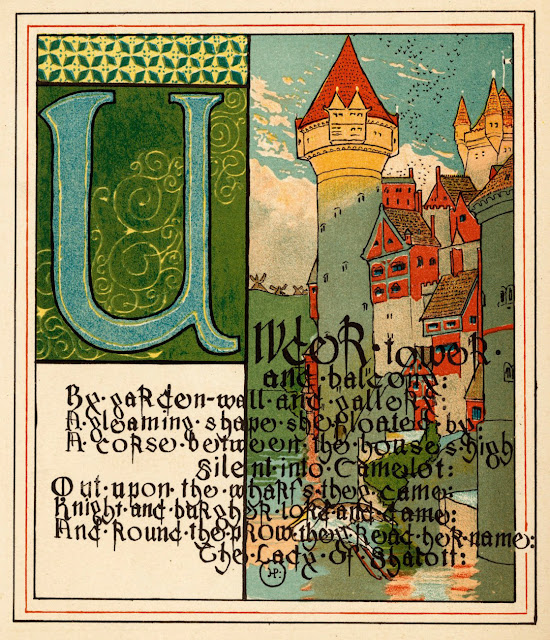 UNDER·tower·
and·balcony:
By·garden-wall·and·gallery
A·gleaming·shape·she·floated·by·
A·corse·between·the·houses·high
Silent·into·Camelot:
Out·upon·the·wharfs·they·came:
Knight·and·burgher·lord·and·dame:
And·round·the·prow·they·read·her·name:
The·Lady·of·Shalott:
HP: